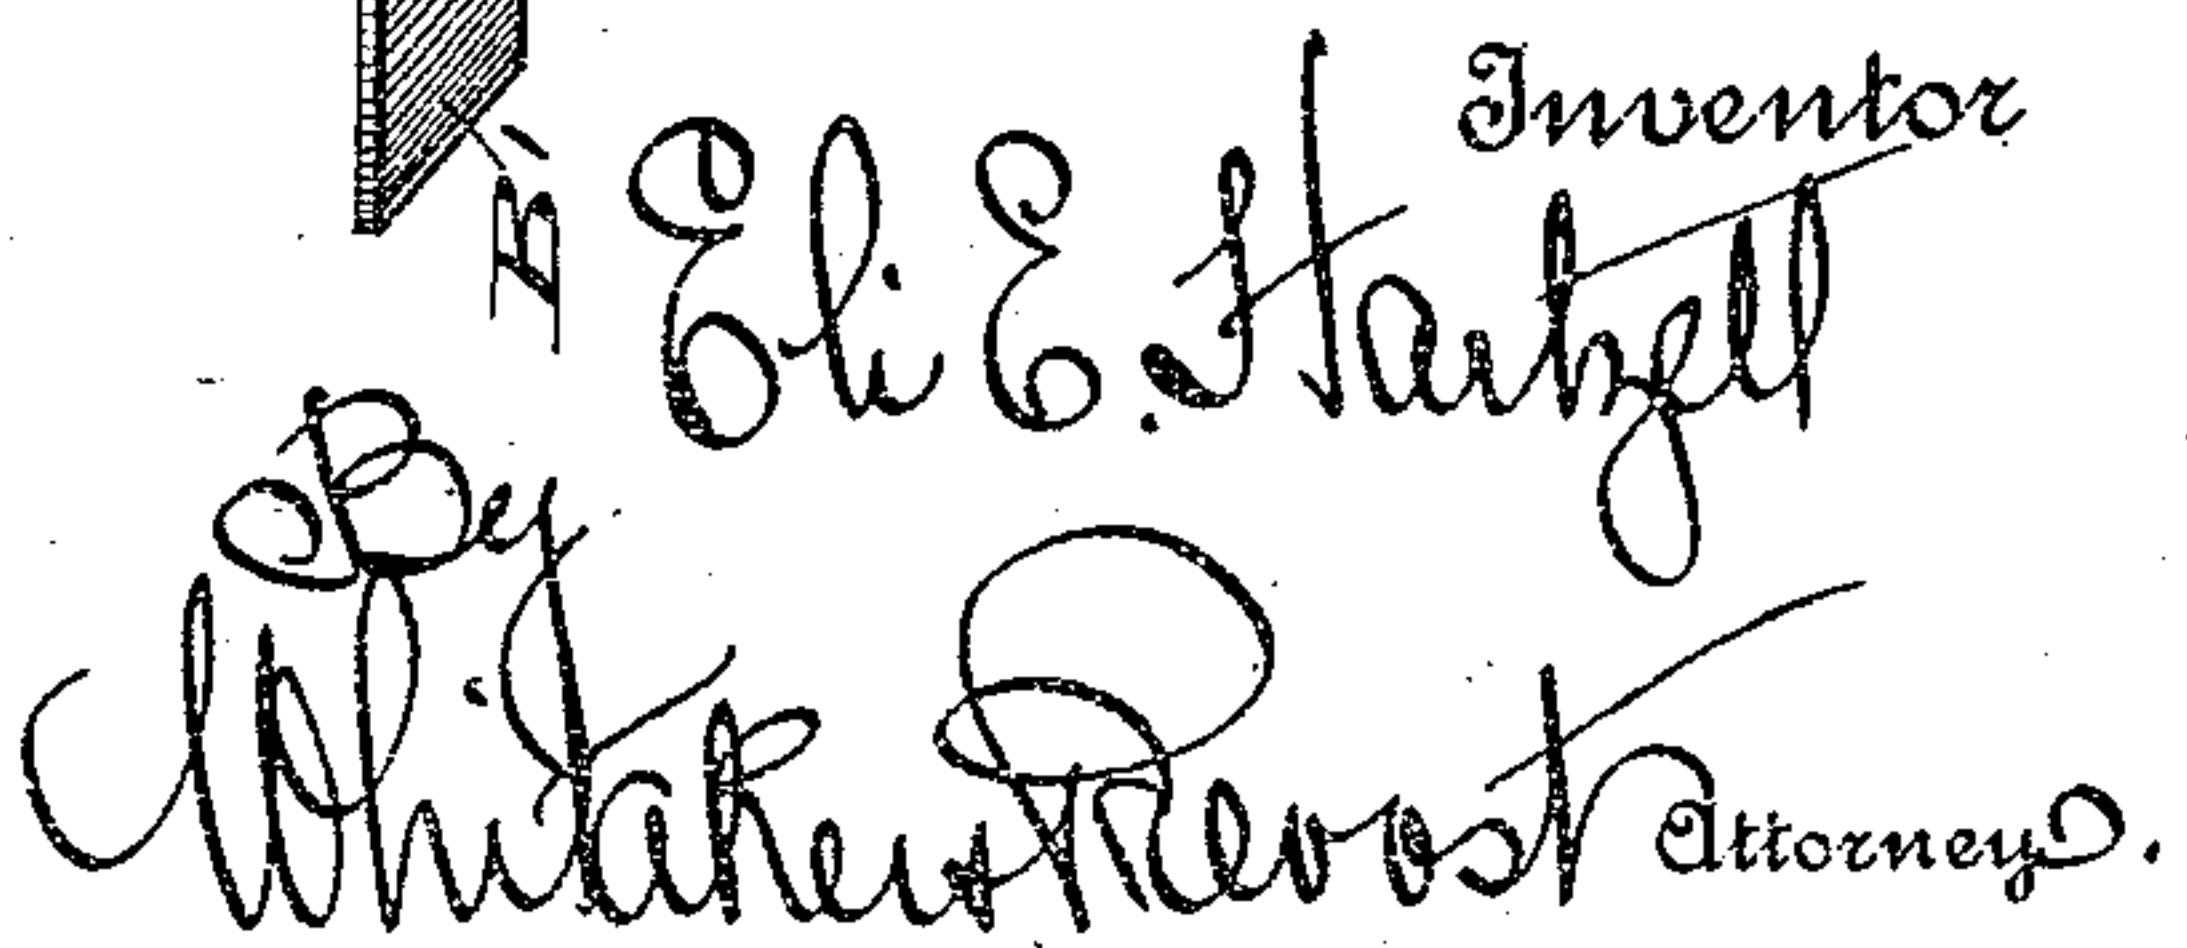 Inventor
B'
Eli E. Hartzell
By
Whitaker & Prevost Attorneys.